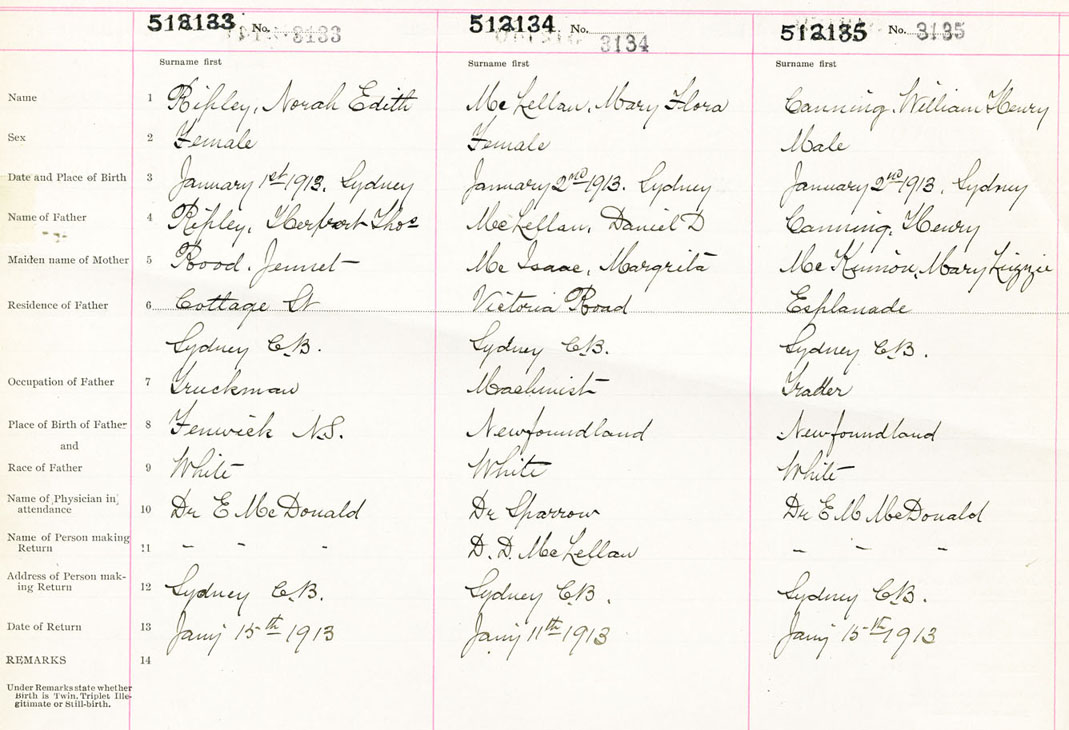 512133 No. 3133 512134 No. 3134 512135 No. 3135
Surname first Surname first Surname first
Name 1 Ripley, Norah Edith McLellan, Mary Flora Canning, William Henry
Sex 2 Female Female Male
Date and Place of Birth 3 January 1st 1913, Sydney January 2nd 1913. Sydney January 2nd 1913, Sydney
Name of Father 4 Ripley, Thos McLellan, Daniel D Canning, Henry
Maiden name of Mother 5 Rood, Jennet Mc Isaac, Margrita Mc Kinnon, Mary Lizzie
Residence of Father 6 Cottage St Victoria Road Esplanade
Sydney C.B. Sydney C.B. Sydney C.B.
Occupation of Father 7 Truckman Machinist Trader
Place of Birth of Father 8 Fenwick N.S. Newfoundland Newfoundland
and
Race of Father 9 White White White
Name of Physician in
attendance 10 Dr E McDonald Dr Sparrow Dr E M McDonald
Name of Person making
Return 11 - - - D. D. McLellan - - -
Address of Person mak-
ing Return 12 Sydney C.B. Sydney C.B. Sydney C.B.
Date of Return 13 Jany 15th 1913 Jany 11th 1913 Jany 15th 1913
REMARKS 14
Under Remarks state whether
Birth is Twin, Triplet Ille-
gitimate or Still-birth.